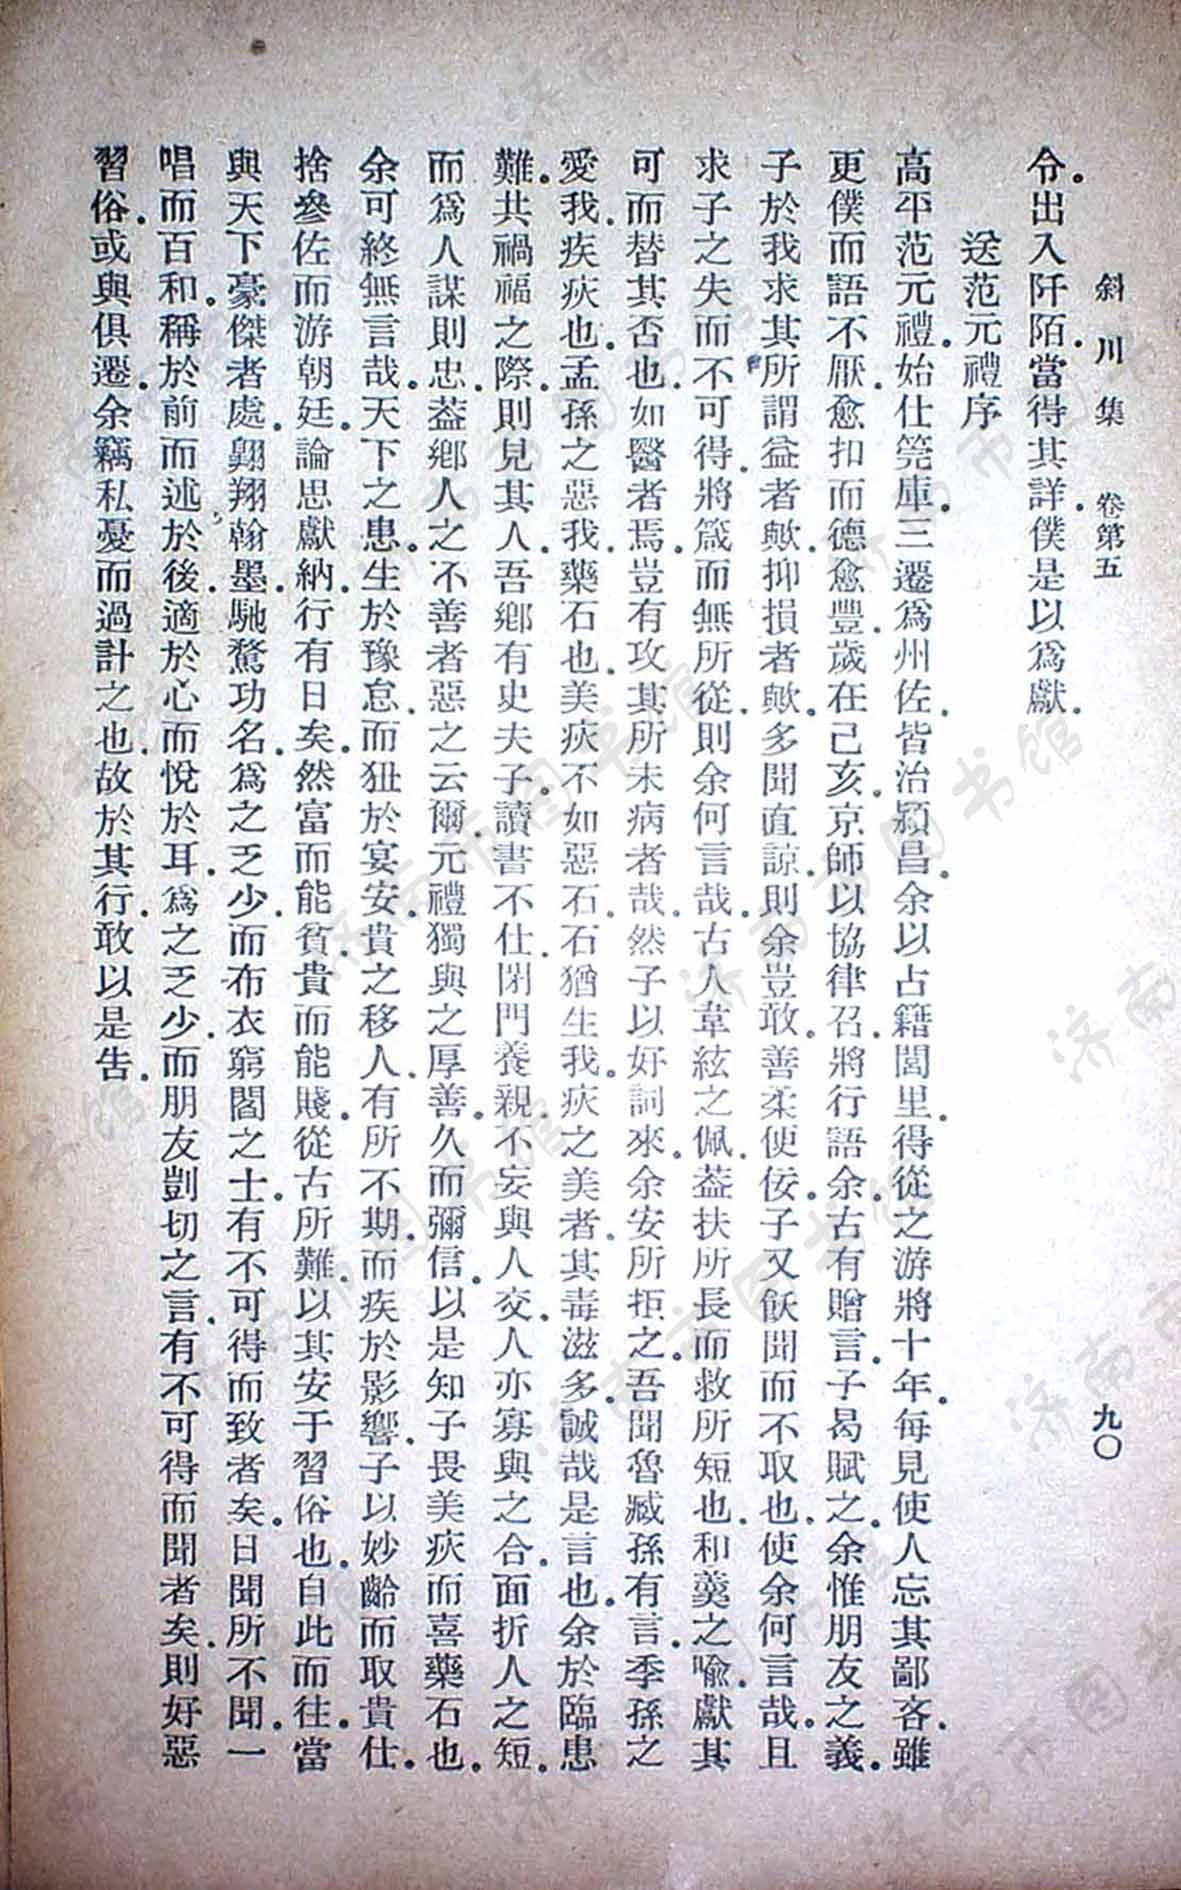 斜川集 卷第五 九〇
令。出入阡陌。當得其詳。僕是以爲獻。
送范元禮序
高平范元禮。始仕筦庫。三遷爲州佐。皆治潁昌。余以占籍閭里。得從之游將十年。每見使人忘其鄙吝。雖
更僕而語不厭。愈扣而德愈豐。歲在己亥。京師以協律召。將行語余。古有贈言。子曷賦之。余惟朋友之義。
子於我求其所謂益者歟。抑損者歟。多聞直諒。則余豈敢。善柔便佞。子又飫聞而不取也。使余何言哉。且
求子之失而不可得。將箴而無所從。則余何言哉。古人韋絃之佩。蓋扶所長而救所短也。和羹之喻。獻其
可而替其否也。如醫者焉。豈有攻其所未病者哉。然子以好詞來。余安所拒之。吾聞魯臧孫有言。季孫之
愛我。疾疢也。孟孫之惡我。藥石也。美疢不如惡石。石猶生我。疢之美者。其毒滋多。誠哉是言也。余於臨患
難。共禍福之際。則見其人。吾鄉有史夫子。讀書不仕。閉門養親。不妄與人交。人亦寡與之合。面折人之短。
而爲人謀則忠。蓋鄉人之不善者惡之云爾。元禮獨與之厚善。久而彌信。以是知子畏美疢而喜藥石也。
余可終無言哉。天下之患。生於豫怠。而狃於宴安。貴之移人。有所不期。而疾於影響。子以妙齡而取貴仕。
捨參佐而游朝廷。論思獻納。行有日矣。然富而能貧。貴而能賤。從古所難。以其安于習俗也。自此而往。當
與天下豪傑者處。翺翔翰墨。馳騖功名。爲之乏少。而布衣窮閻之士。有不可得而致者矣。日聞所不聞。一
唱而百和。稱於前而述於後。適於心而悅於耳。爲之乏少。而朋友剴切之言。有不可得而聞者矣。則好惡
習俗。或與俱遷。余竊私憂而過計之也。故於其行。敢以是告。
济南市图书馆